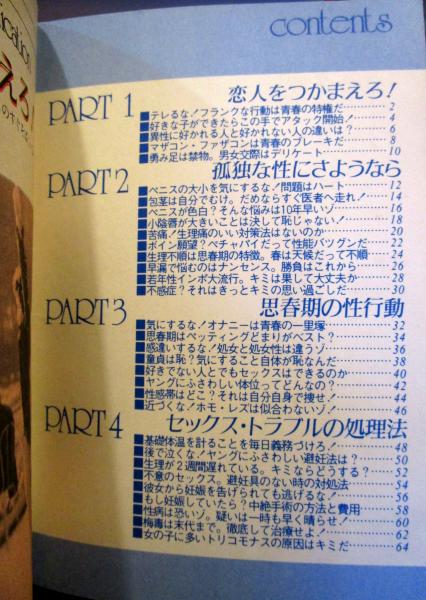 contents
PART 1
恋人をつかまえろ!
■テレるな!フランクな行動は青春の特権だ…………2
■好きな子ができたらこの手でアタック開始!…………4
■異性に好かれる人と好かれない人の違いは?…………6
■マザコン・ファザコンは青春のブレーキだ…………8
■勇み足は禁物。男女交際はデリケート…………10
PART 2
孤独な性にさようなら
■ペニスの大小を気にするな!問題はハート…………12
■包茎は自分でむけ。だめならすぐ医者へ走れ!…………14
■ペニスが色白?そんな悩みは10年早いゾ…………16
■小陰唇が大きいことは決して恥じゃない!…………18
■苦痛!生理痛のいい対策法はないのか…………20
■ボイン願望?ペチャパイだって性能バツグンだ…………22
■生理不順は思春期の特徴。春は天候だって不順…………24
■早漏で悩むのはナンセンス。勝負はこれから…………26
■若年性インポ大流行。キミは果して大丈夫か…………28
■不感症?それはきっとキミの思い過ごしだ…………30
PART 3
思春期の性行動
■気にするな!オナニーは青春の一里塚…………32
■思春期はペッティングどまりがベスト?…………34
■感違いするな!処女と処女性は違うゾ…………36
■童貞は恥?気にすること自体が恥なんだ…………38
■好きでない人とでもセックスはできるのか…………40
■ヤングにふさわしい体位ってどんなの?…………42
■性感帯はどこ?それは自分自身で捜せ!…………44
■近づくな!ホモ・レズは似合わないゾ!…………46
PART 4
セックス・トラブルの処理法
■基礎体温を計ることを毎日義務づけろ!…………48
■後で泣くな!ヤングにふさわしい避妊法は?…………50
■生理が2週間遅れている。キミならどうする?…………52
■不意のセックス。避妊具のない時の対処法…………54
■彼女から妊娠を告げられても逃げるな!…………56
■もし妊娠していたら?中絶手術の方法と費用…………58
■性病は恐いゾ。疑いは一時も早く晴らせ!…………60
■梅毒は末代まで。徹底して治療せよ!…………62
■女の子に多いトリコモナスの原因はキミだ…………64